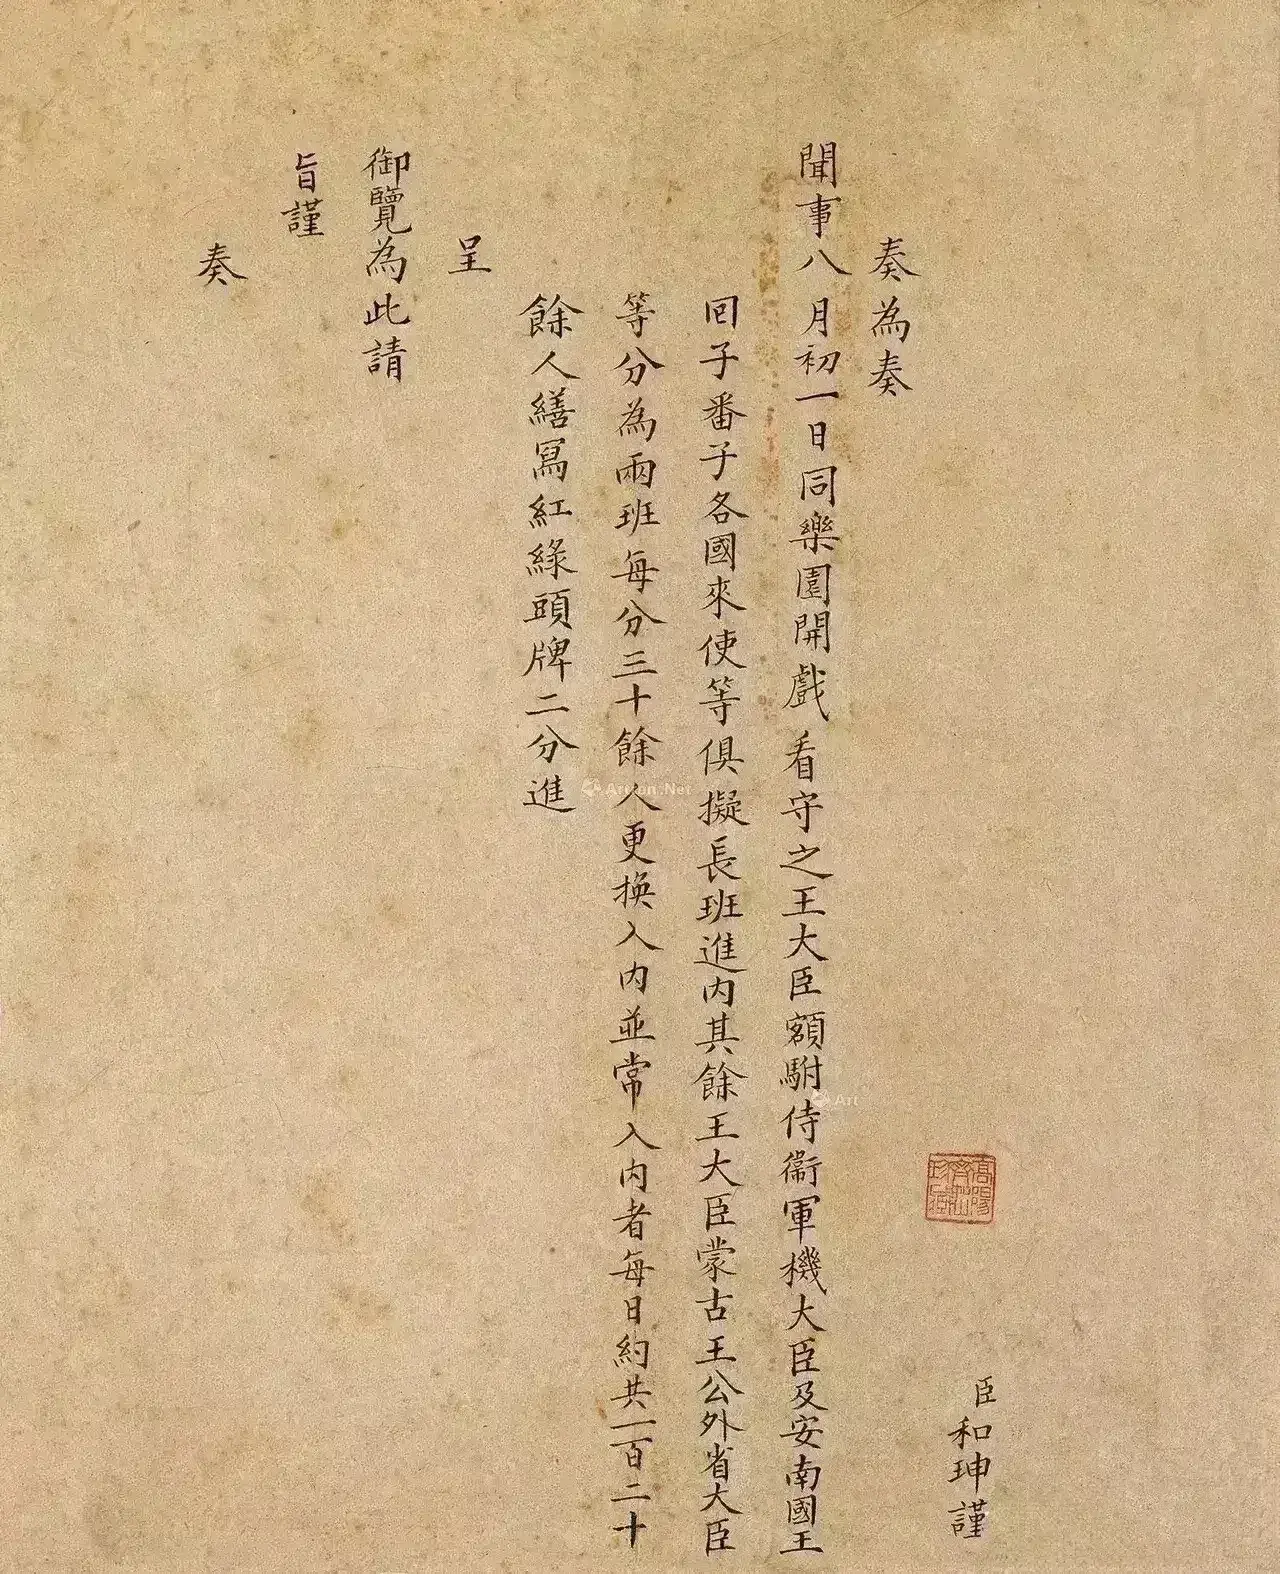 臣和珅謹
奏為奏
聞事八月初一日同樂園開戲看守之王大臣額駙侍衞軍機大臣及安南國王
回子番子各國來使等俱擬長班進內其餘王大臣蒙古王公外省大臣
等分為兩班每分三十餘人更換入內並常入內者每日約共一百二十
餘人繕寫紅綠頭牌二分進
呈
御覽為此請
旨謹
奏
高陽
齊